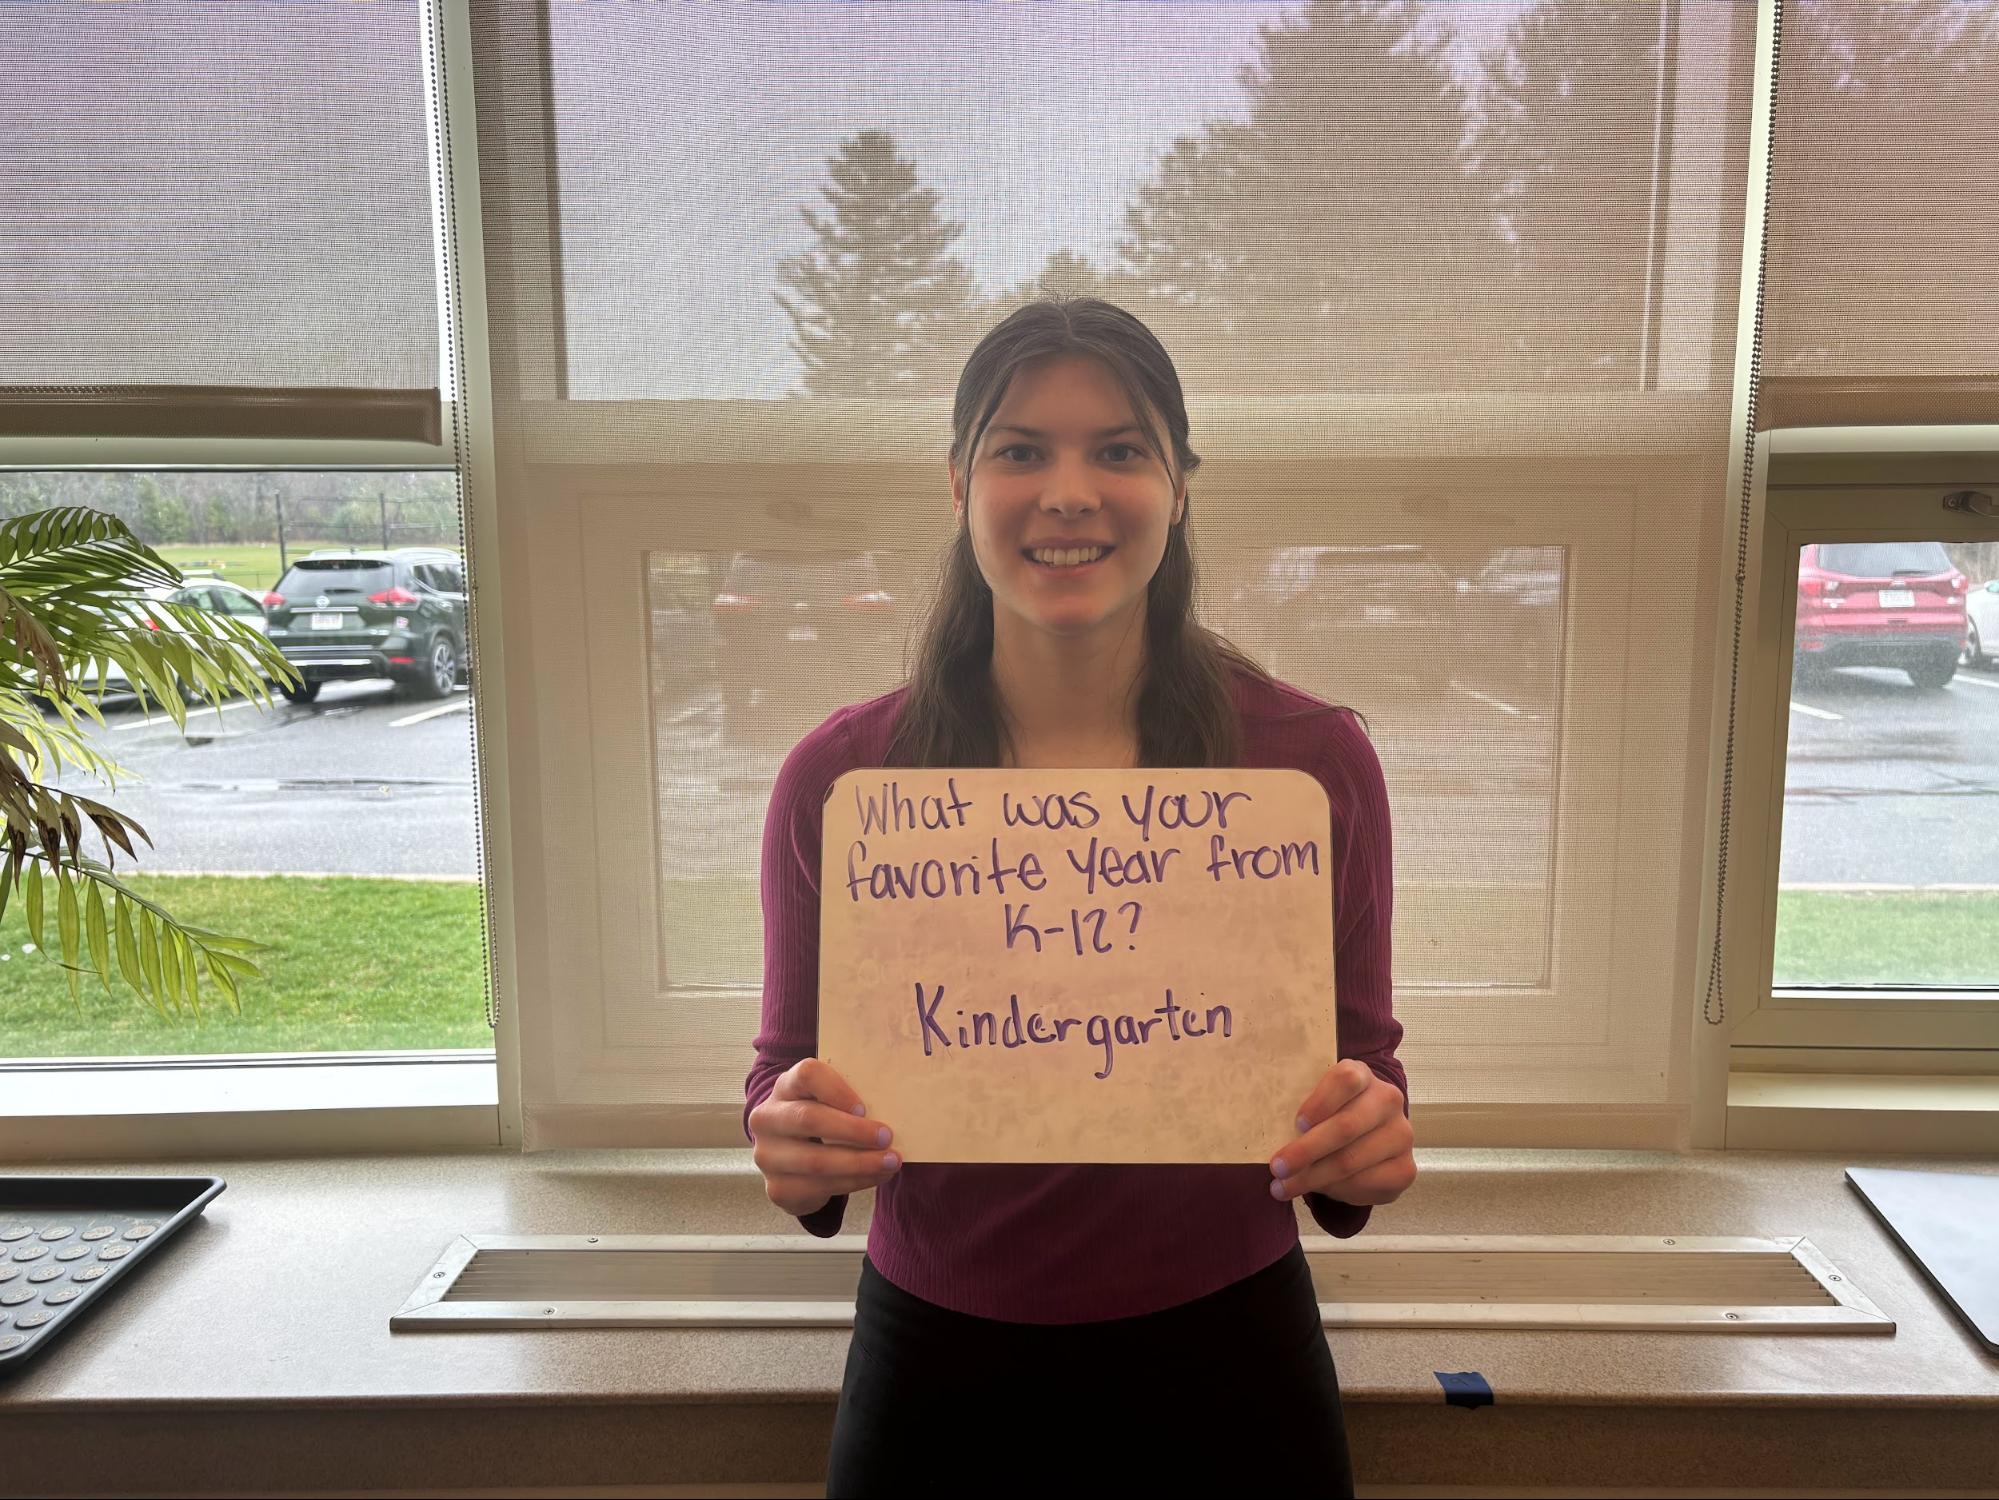 What was your
favorite year from
K-12?
Kindergarten